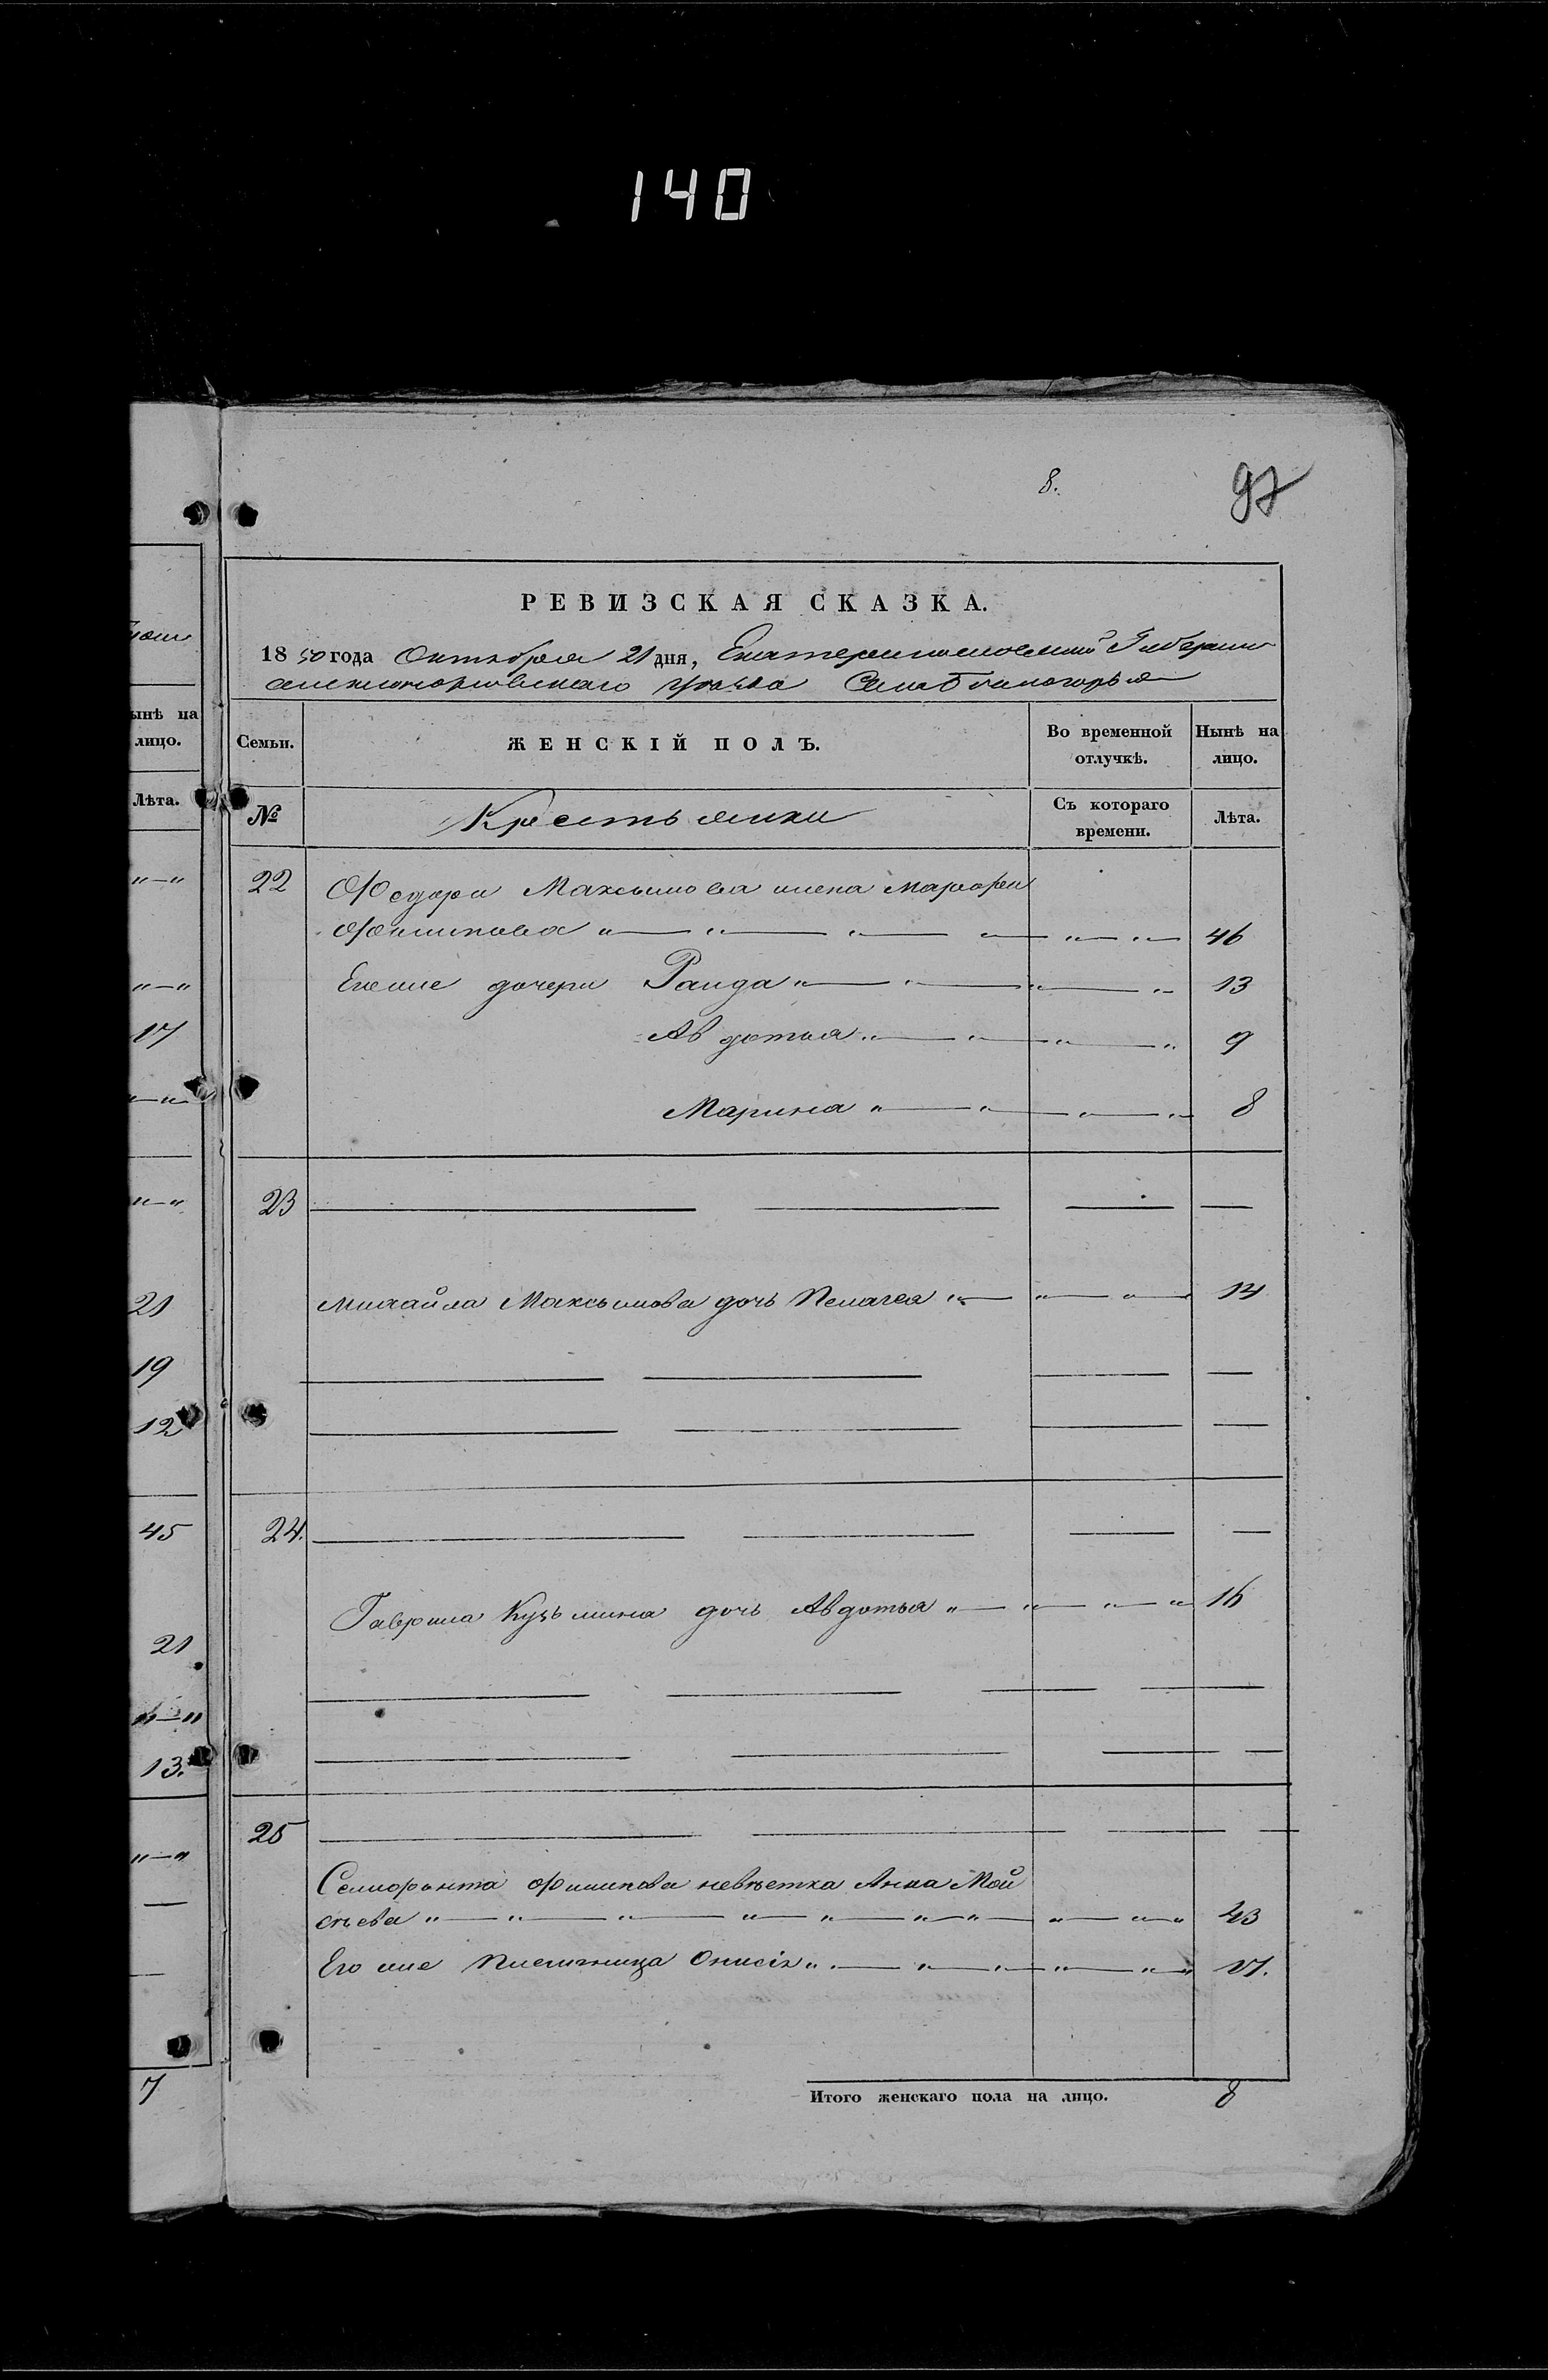 140
8.
97
РЕВИЗСКАЯ СКАЗКА.
1850 года Октября 21 дня, Екатеринославской Губернии
Александровскаго уезда Села Белагорья
Семьи.
ЖЕНСКІЙ ПОЛЪ.
Во временной отлучкѣ.
Нынѣ на лицо.
№
Крестьянки
Съ котораго времени.
Лѣта.
22 Федора Максимова жена
Филипова 46
Ея же дочери Раида 13
Авдотья 9
Марина 8
23
Михайла Максимова дочь Пелагея 14
24.
Гаврила Кузьмина дочь Авдотья 16
25
Филипова невѣстка Анна Мой
сѣева 43
Его же Племянница Онисія 17.
Итого женскаго пола на лицо. 8
ынѣ на
лицо.
Лѣта.
17
21
19
12
45
21
13.
7